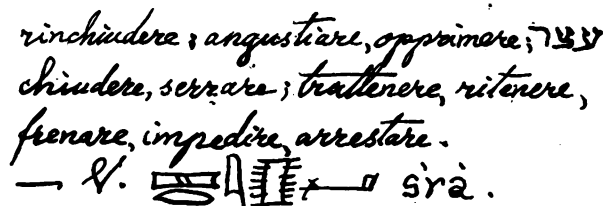 rinchiudere; angustiare, opprimere; עצר
chiudere, serrare; trattenere, ritenere,
frenare, impedire, arrestare.
— V. śrà.